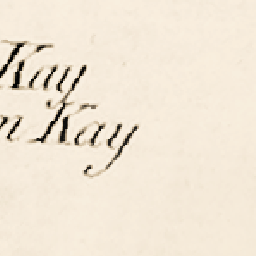 Kay
n Kay